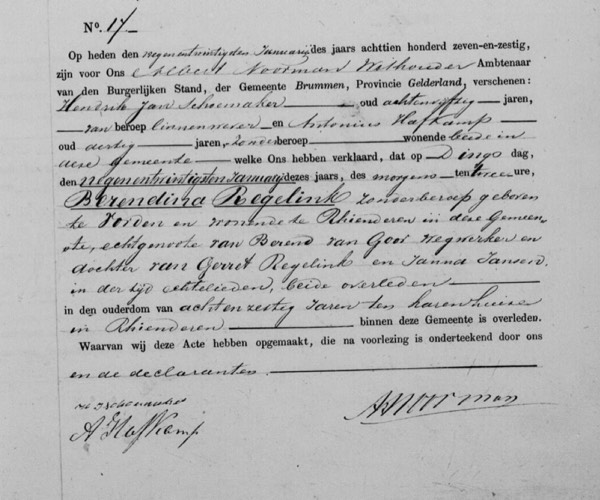 N°. 17
Op heden den negenentwintigsten Januarij des jaars achttien honderd zeven-en-zestig,
zijn voor Ons Albert Noorman Wethouder Ambtenaar
van den Burgerlijken Stand, der Gemeente Brummen, Provincie Gelderland, verschenen:
Hendrik Jan Schoemaker oud achtenvijftig jaren,
van beroep linnenwever en Antonius Hafkamp
oud dertig jaren, zonder beroep wonende beide in
deze gemeente welke Ons hebben verklaard, dat op Dings dag,
den negenentwintigsten Januarij dezes jaars, des morgens ten twee ure,
Berendina Regelink zonder beroep geboren
te Vorden en wonende te Rhienderen in deze Gemeen-
te, echtgenoote van Berend van Gooi wegwerker en
dochter van Gerret Regelink en Janna Jansen,
in der tijd echtelieden, beide overleden
in den ouderdom van achtenzestig Jaren ten haren huize
in Rhienderen binnen deze Gemeente is overleden.
Waarvan wij deze Acte hebben opgemaakt, die na voorlezing is onderteekend door ons
en de declaranten.
H J Schoemaker
A Hafkamp
A Noorman